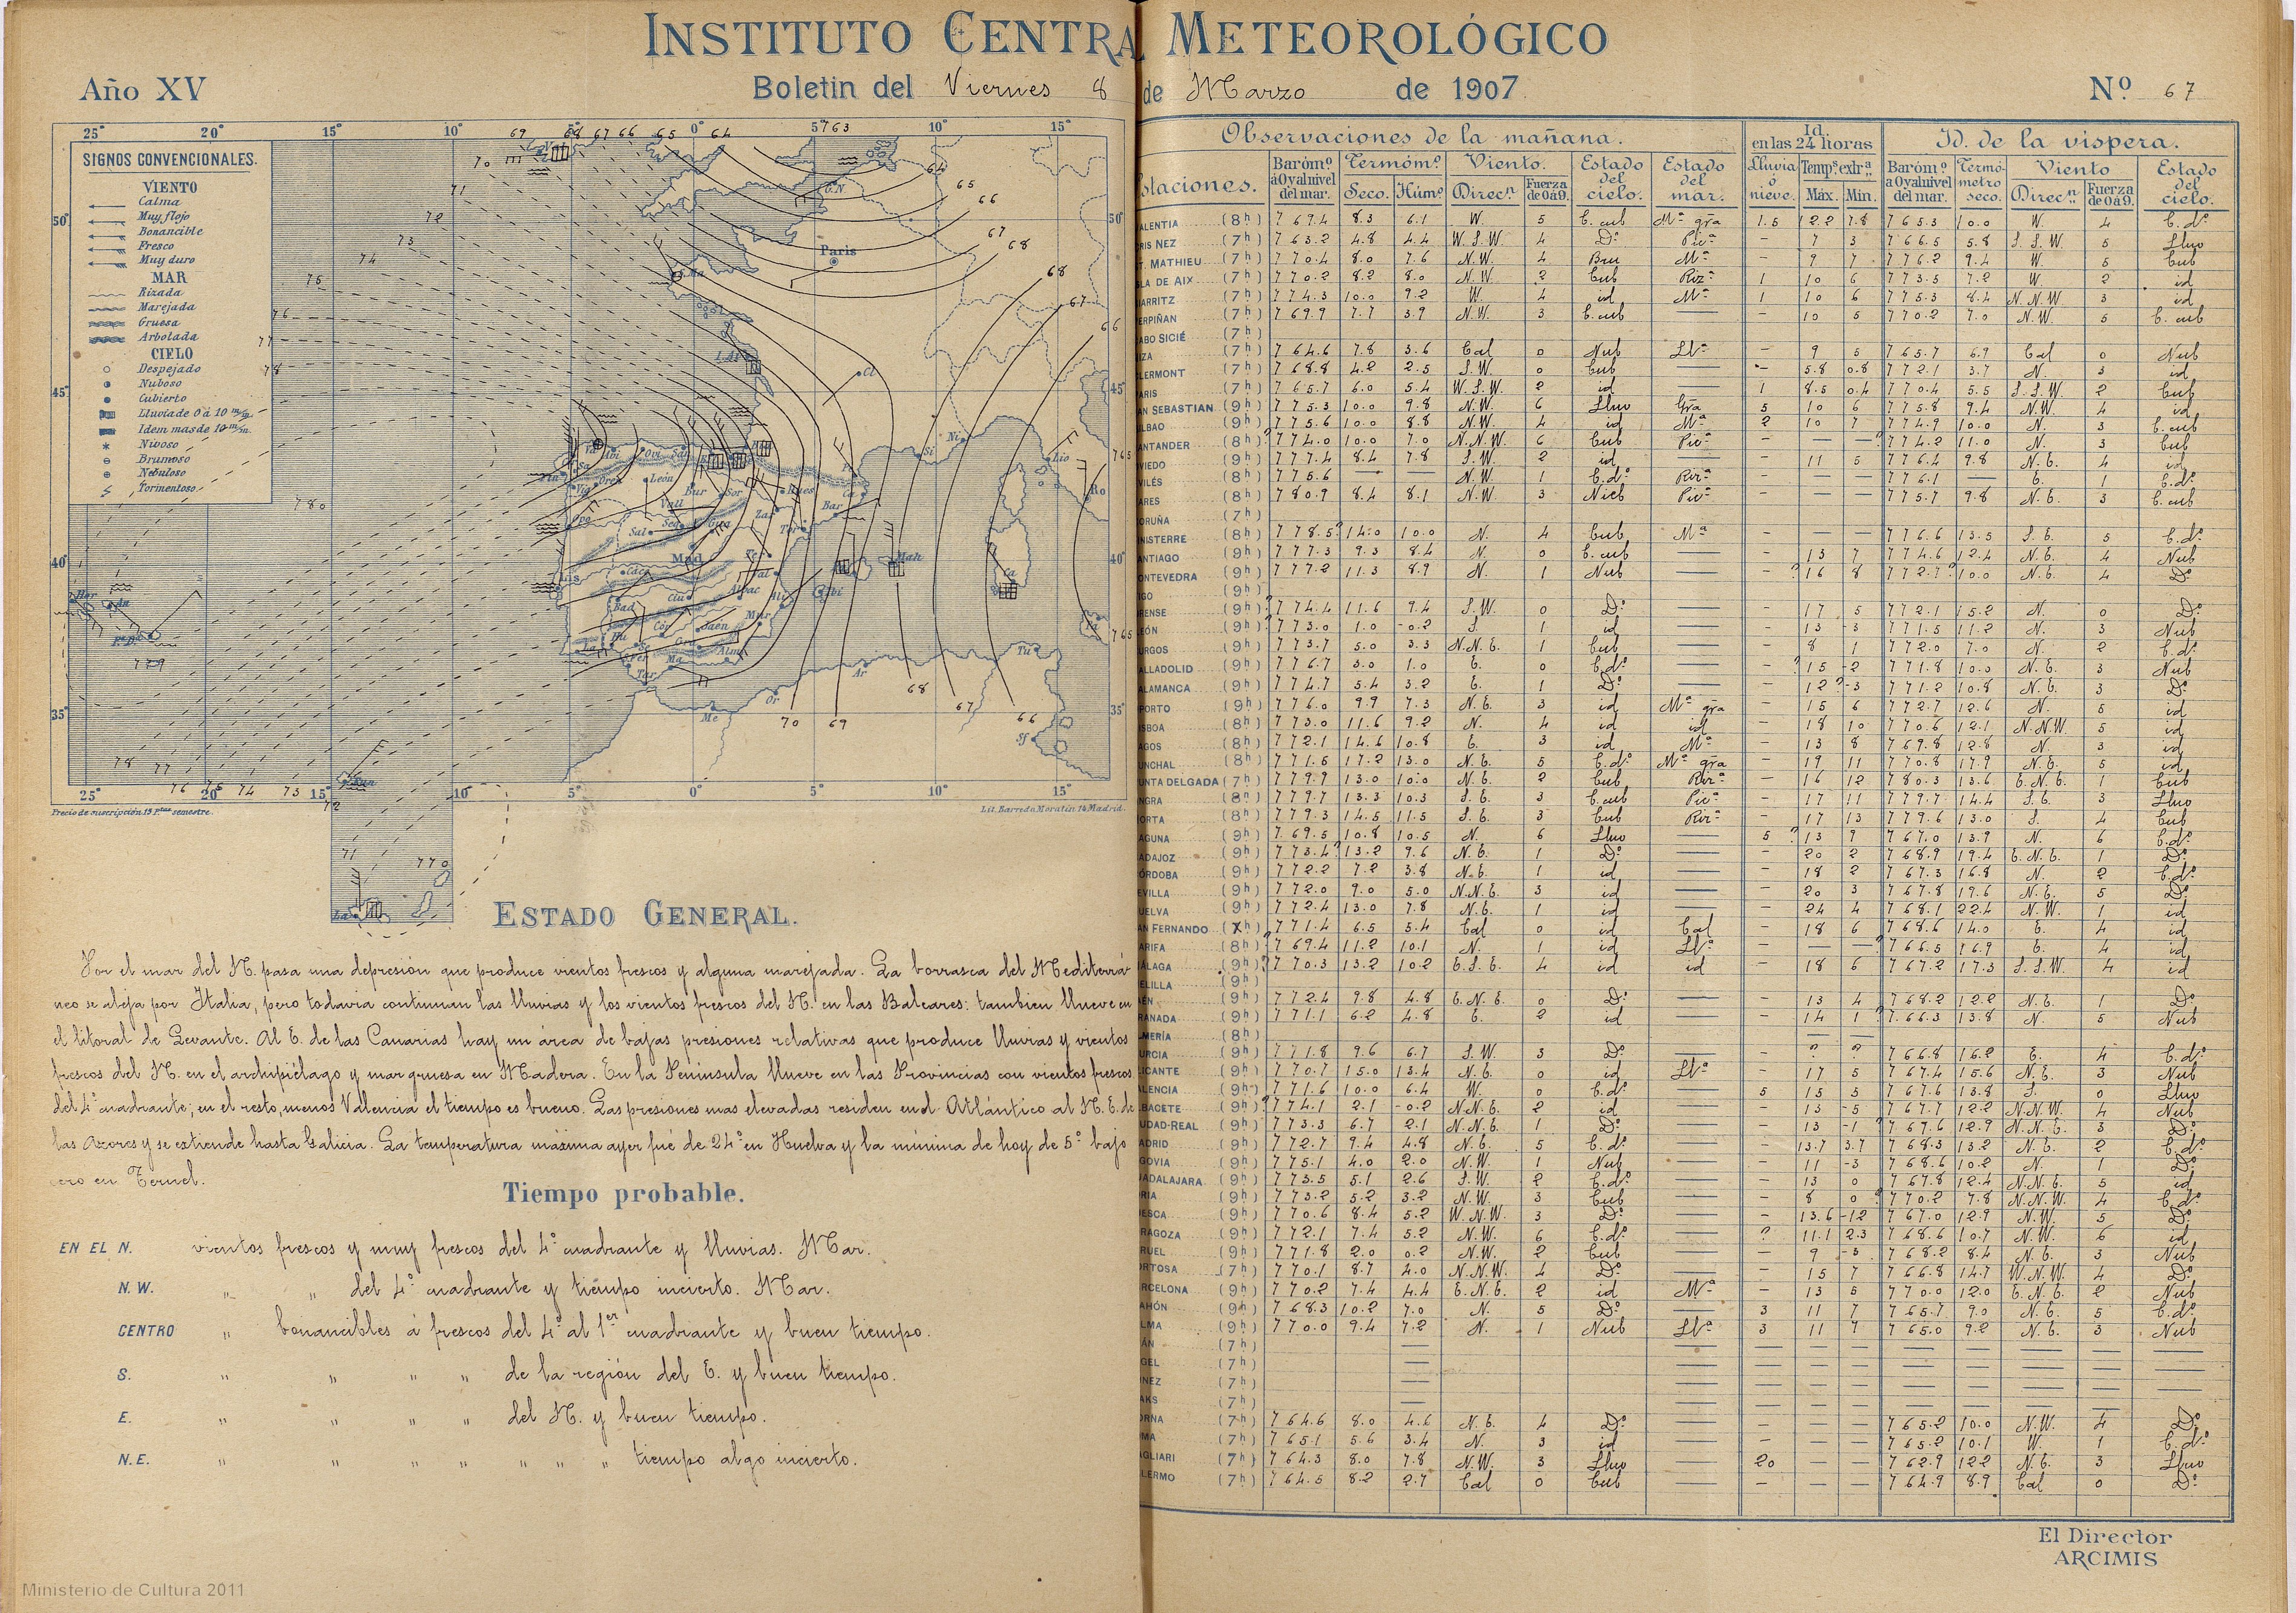 INSTITUTO CENTRA METEOROLÓGICO
Año XV
Boletin del Viernes 8 de Marzo de 1907
Nº 67
25° 20° 15° 10° 5° 0° 5° 10° 15°
SIGNOS CONVENCIONALES.
VIENTO
Calma
Muy flojo
Bonancible
Fresco
Muy duro
MAR
Rizada
Marejada
Gruesa
Arbolada
CIELO
Despejado
Nuboso
Cubierto
Lluvia de 0 á 10 m/m
Idem mas de 10 m/m
Nivoso
Brumoso
Nebuloso
Tormentoso
Paris
Mad
25° 20° 15° 10° 5° 0° 5° 10° 15°
Precio de suscripción 15 Ptas semestre.
Lit. Barreda Moratín 14 Madrid.
ESTADO GENERAL.
Por el mar del N. pasa una depresión que produce vientos frescos y alguna marejada. La borrasca del Mediterrá
neo se aleja por Italia, pero todavia continuan las lluvias y los vientos frescos del N. en las Baleares: tambien llueve en
el litoral de Levante. Al E. de las Canarias hay un área de bajas presiones relativas que produce lluvias y vientos
frescos del N. en el archipiélago y mar gruesa en Madera. En la Peninsula llueve en las Provincias con vientos frescos
del 4º cuadrante; en el resto, menos Valencia el tiempo es bueno. Las presiones mas elevadas residen en el Atlántico al N. E. de
las Azores y se extiende hasta Galicia. La temperatura máxima ayer fué de 24° en Huelva y la mínima de hoy de 5° bajo
cero en Teruel.
Tiempo probable.
EN EL N. vientos frescos y muy frescos del 4º cuadrante y lluvias. Mar.
N.W. " " del 4º cuadrante y tiempo incierto. Mar.
CENTRO " bonancibles á frescos del 4º al 1er cuadrante y buen tiempo.
S. " " " " de la región del E. y buen tiempo.
E. " " " " del N. y buen tiempo.
N.E. " " " " " " " tiempo algo incierto.
Observaciones de la mañana.
Id. en las 24 horas
Id. de la vispera.
staciones.
Baróm.º á 0 y al nivel del mar.
Termóm.º Seco. Húm.º
Viento. Direc.n Fuerza de 0 á 9.
Estado del cielo.
Estado del mar.
Lluvia ó nieve.
Temp.s extr.s Máx. Mín.
Baróm.º a 0 y al nivel del mar.
Termómetro seco.
Viento Direc.n Fuerza de 0 á 9.
Estado del cielo.
ALENTIA (8h) 769.4 8.3 6.1 W. 5 C. cub Mª grª 1.5 12.2 7.8 765.3 10.0 W. 4 C. dº
RIS NEZ (7h) 763.2 4.8 4.4 W.S.W. 4 Dº Picª — 7 3 766.5 5.8 S.S.W. 5 Lluv
T. MATHIEU (7h) 770.4 8.0 7.6 N.W. 4 Bru Mª — 9 7 776.2 9.4 W. 5 Cub
SLA DE AIX (7h) 770.2 8.2 8.0 N.W. 2 Cub Rizª 1 10 6 773.5 7.2 W. 2 id
IARRITZ (7h) 774.3 10.0 9.2 W. 4 id Mª 1 10 6 775.3 8.4 N.N.W. 3 id
ERPIÑAN (7h) 769.9 7.7 3.9 N.W. 3 C. cub — — 10 5 770.2 7.0 N.W. 5 C. cub
ABO SICIÉ (7h)
IZA (7h) 764.6 7.8 3.6 Cal 0 Nub Llª — 9 5 765.7 6.9 Cal 0 Nub
LERMONT (7h) 768.8 4.2 2.5 S.W. 0 Cub — — 5.8 0.8 772.1 3.7 N. 3 id
ARIS (7h) 765.7 6.0 5.4 W.S.W. 2 id — 1 8.5 0.4 770.4 5.5 S.S.W. 2 Cub
AN SEBASTIAN (9h) 775.3 10.0 9.8 N.W. 6 Lluv Grª 5 10 6 775.8 9.4 N.W. 4 id
ILBAO (9h) 775.6 10.0 8.8 N.W. 4 id Mª 2 10 7 774.9 10.0 N. 3 C. cub
ANTANDER (8h) 774.0 10.0 7.0 N.N.W. 6 Cub Picª — — — 774.2 11.0 N. 3 Cub
VIEDO (9h) 777.4 8.4 7.8 S.W. 2 id — — 11 5 776.4 9.8 N.E. 4 id
VILÉS (8h) 775.6 — — N.W. 1 C. dº Rizª — — — 776.1 — E. 1 C. dº
ARES (8h) 780.9 8.4 8.1 N.W 3 Nieb Picª — — — 775.7 9.8 N.E. 3 C. cub
ORUÑA (7h)
NISTERRE (8h) 778.5? 14.0 10.0 N. 4 Cub Mª — — — 776.6 13.5 S.E. 5 C. dº
ANTIAGO (9h) 777.3 9.3 8.4 N. 0 C. cub — — 13 7 774.6 12.4 N.E. 4 Nub
ONTEVEDRA (9h) 777.2 11.3 8.9 N. 1 Nub — — 16 8 772.7? 10.0 N.E. 4 Dº
GO (9h)
RENSE (9h) 774.4 11.6 9.4 S.W. 0 Dº — — 17 5 772.1 15.2 N. 0 Dº
EÓN (9h) 773.0 1.0 -0.2 S. 1 id — — 13 -3 771.5 11.2 N. 3 Nub
URGOS (9h) 773.7 5.0 3.3 N.N.E. 1 Cub — — 8 1 772.0 7.0 N. 2 C. dº
ALLADOLID (9h) 776.7 3.0 1.0 E. 0 C. dº — — 15 -2 771.8 10.0 N.E. 3 Nub
ALAMANCA (9h) 774.7 5.4 3.2 E. 1 Dº — — 12? -3 771.2 10.8 N.E. 3 Dº
PORTO (9h) 776.0 9.9 7.3 N.E. 3 id Mª grª — 15 6 772.7 12.6 N. 5 id
ISBOA (8h) 773.0 11.6 9.2 N. 4 id id — 18 10 770.6 12.1 N.N.W. 5 id
AGOS (8h) 772.1 14.6 10.8 E. 3 id Mª — 13 8 769.8 12.8 N. 3 id
UNCHAL (8h) 771.6 17.2 13.0 N.E. 5 C. dº Mª grª — 19 11 770.8 17.9 N.E. 5 id
UNTA DELGADA (7h) 779.9 13.0 10.0 N.E. 2 Cub Rizª — 16 12 780.3 13.6 E.N.E. 1 Cub
NGRA (8h) 779.7 13.3 10.3 S.E. 3 C. cub Picª — 17 11 779.7 14.4 S.E. 3 Lluv
ORTA (8h) 779.3 14.5 11.5 S.E. 3 Cub Rizª — 17 13 779.6 13.0 S. 4 Cub
AGUNA (9h) 769.5 10.8 10.5 N. 6 Lluv — 5 ? 13 9 767.0 13.9 N. 6 C. dº
ADAJOZ (9h) 773.4? 13.2 9.6 N.E. 1 Dº — — 20 2 768.9 19.4 E.N.E. 1 Dº
ÓRDOBA (9h) 772.2 7.2 3.8 N.E. 1 id — — 18 2 767.3 16.8 N. 2 C. dº
EVILLA (9h) 772.0 9.0 5.0 N.N.E. 3 id — — 20 3 767.8 19.6 N.E. 5 Dº
UELVA (9h) 772.4 13.0 7.8 N.E. 1 id — — 24 4 768.1 22.4 N.W. 1 id
AN FERNANDO 771.4 6.5 5.4 Cal 0 id Cal — 18 6 768.6 14.0 E. 4 id
ARIFA (8h) 769.4 11.2 10.1 N. 1 id Llª — — — 766.5 16.9 E. 4 id
ÁLAGA (9h) 770.3 13.2 10.2 E.S.E. 4 id id — 18 6 767.2 17.3 S.S.W. 4 id
ELILLA (9h)
ÉN (9h) 772.4 9.8 4.8 E.N.E. 0 Dº — — 13 4 768.2 12.2 N.E. 1 Dº
RANADA (9h) 771.1 6.2 4.8 E. 2 id — — 14 1 766.3 13.8 N. 5 Nub
LMERÍA (8h) — —
URCIA (9h) 771.8 9.6 6.7 S.W. 3 Dº — — ? ? 766.8 16.2 E. 4 C. dº
LICANTE (9h) 770.7 15.0 13.4 N.E. 0 id Llª — 17 5 767.4 15.6 N.E. 3 Nub
ALENCIA (9h) 771.6 10.0 6.4 W. 0 C. dº — 5 15 3 767.6 13.8 S. 0 Lluv
LBACETE (9h) 774.1 2.1 -0.2 N.N.E. 2 id — — 13 -5 767.7 12.2 N.N.W. 4 Nub
UDAD-REAL (9h) 773.3 6.7 2.1 N.N.E. 1 Dº — — 13 -1 767.6 12.9 N.N.E. 3 Dº
ADRID (9h) 772.7 9.4 4.8 N.E. 5 C. dº — 13.7 3.7 768.3 13.2 N.E. 2 C. dº
GOVIA (9h) 775.1 4.0 2.0 N.W. 1 Nub — — 11 -3 768.6 10.2 N. 1 Dº
UADALAJARA (9h) 773.5 5.1 2.6 S.W. 2 C. dº — — 13 0 767.8 12.4 N.N.E. 5 id
RIA (9h) 773.2 5.2 3.2 N.W. 3 Cub — — 8 0 770.2 7.8 N.N.W. 4 C. dº
ESCA (9h) 770.6 8.4 5.2 W.N.W. 3 Dº — — 13.6 -1.2 767.0 12.9 N.W. 5 Dº
RAGOZA (9h) 772.1 7.4 5.2 N.W. 6 C. dº — ? 11.1 2.3 768.6 10.7 N.W. 6 id
RUEL (9h) 771.8 2.0 0.2 N.W. 2 Cub — — 9 -3 768.2 8.4 N.E. 3 Nub
ORTOSA (7h) 770.1 8.7 4.0 N.N.W. 4 Dº — — 15 7 766.8 14.7 W.N.W. 4 Dº
RCELONA (9h) 770.2 7.4 4.4 E.N.E. 2 id Mª — 13 5 770.0 12.0 E.N.E. 2 Nub
AHÓN (9h) 768.3 10.2 7.0 N. 5 Dº — 3 11 7 765.7 9.0 N.E. 5 C. dº
LMA (9h) 770.0 9.4 7.2 N. 1 Nub Llª 3 11 7 765.0 9.2 N.E. 3 Nub
ÁN (7h)
GEL (7h)
NEZ (7h)
AKS (7h)
ORNA (7h) 764.6 8.0 4.6 N.E. 4 Dº — — — — 765.2 10.0 N.W. 4 Dº
MA (7h) 765.1 5.6 3.4 N. 3 id — — — — 765.2 10.1 W. 1 C. dº
AGLIARI (7h) 764.3 8.0 7.8 N.W. 3 Lluv — 20 — — 762.9 12.2 N.E. 3 Lluv
LERMO (7h) 764.5 8.2 2.7 Cal 0 Cub — — — — 764.9 8.9 Cal 0 Dº
El Director
ARCIMIS
Ministerio de Cultura 2011